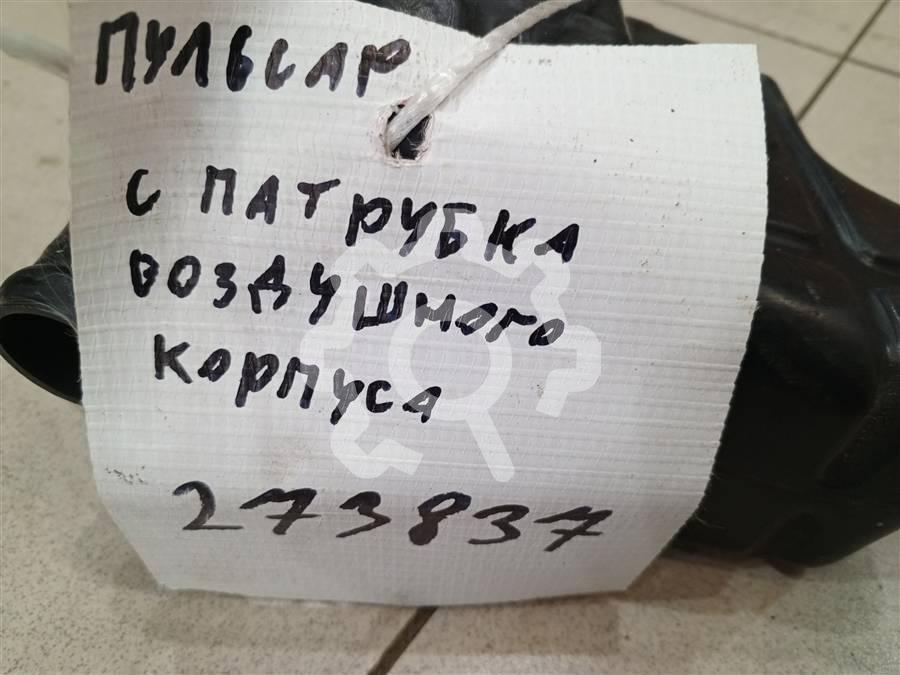 ПУЛЬСАР
С ПАТРУБКА
ВОЗДУШНОГО
КОРПУСА
273837